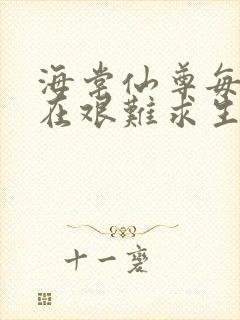 海棠仙尊每
在艰難求生
十一裹